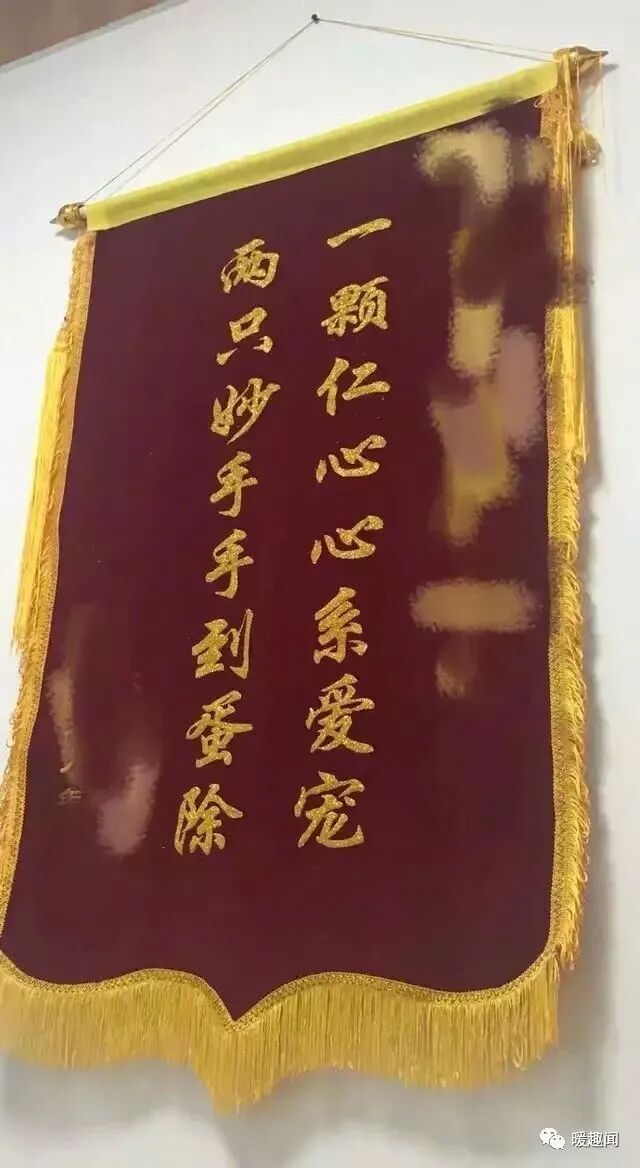 一颗仁心心系爱宠
两只妙手手到蛋除
暖趣闻